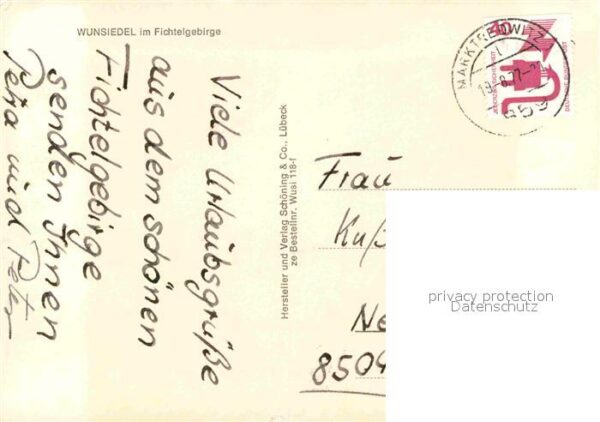 WUNSIEDEL im Fichtelgebirge
Viele Urlaubsgrüße
aus dem schönen
Fichtelgebirge
senden Ihnen
und Peter
Hersteller und Verlag Schöning & Co., Lübeck
ze Bestellnr. Wusi 118-f
MARKTREDWITZ
40
JEDERZEIT SICHERHEIT
DEUTSCHE BUNDESPOST
Frau
Kuß
Ne
8504
privacy protection
Datenschutz